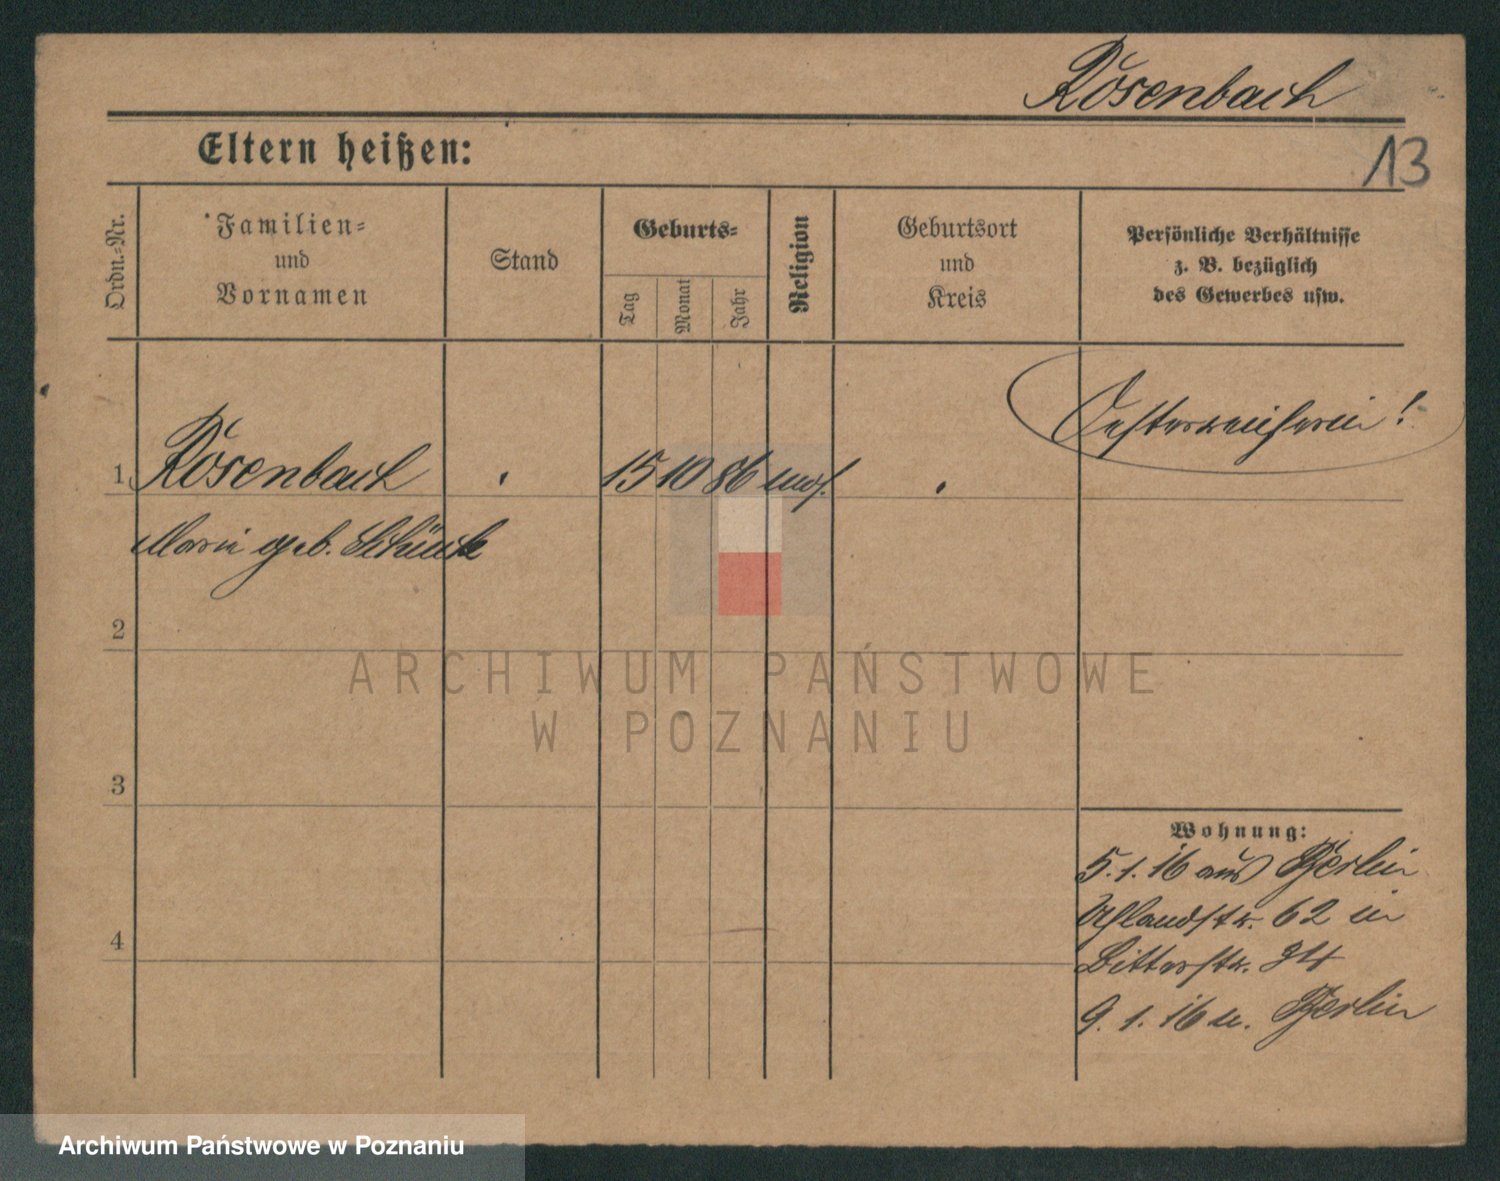 Rosenbach
13
Eltern heißen:
Ordn.-Nr.
Familien-
und
Vornamen
Stand
Geburts-
Tag
Monat
Jahr
Religion
Geburtsort
und
Kreis
Persönliche Verhältnisse
z. B. bezüglich
des Gewerbes usw.
Oesterreicherin!
1
Rosenbach
15 10 86
Marie geb.
2
3
4
Wohnung:
5.1.16 aus Berlin
Uhlandstr. 62 in
Ritterstr.
9.1.16 n. Berlin
ARCHIWUM PAŃSTWOWE
W POZNANIU
Archiwum Państwowe w Poznaniu